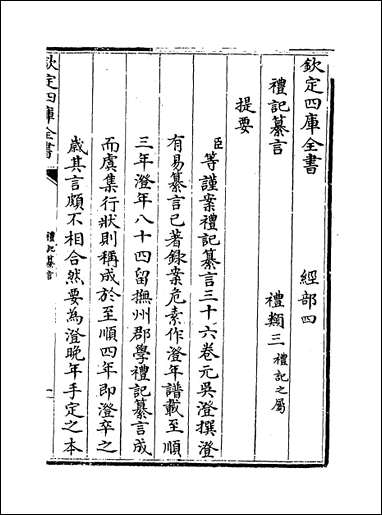 欽定四庫全書 經部四
禮記纂言 禮類三禮記之屬
提要
臣等謹案禮記纂言三十六卷元吳澄撰澄
有易纂言已著錄案危素作澄年譜載至順
三年澄年八十四留撫州郡學禮記纂言成
而虞集行狀則稱成於至順四年即澄卒之
歲其言頗不相合然要為澄晚年手定之本
欽定四庫全書 禮記纂言 一